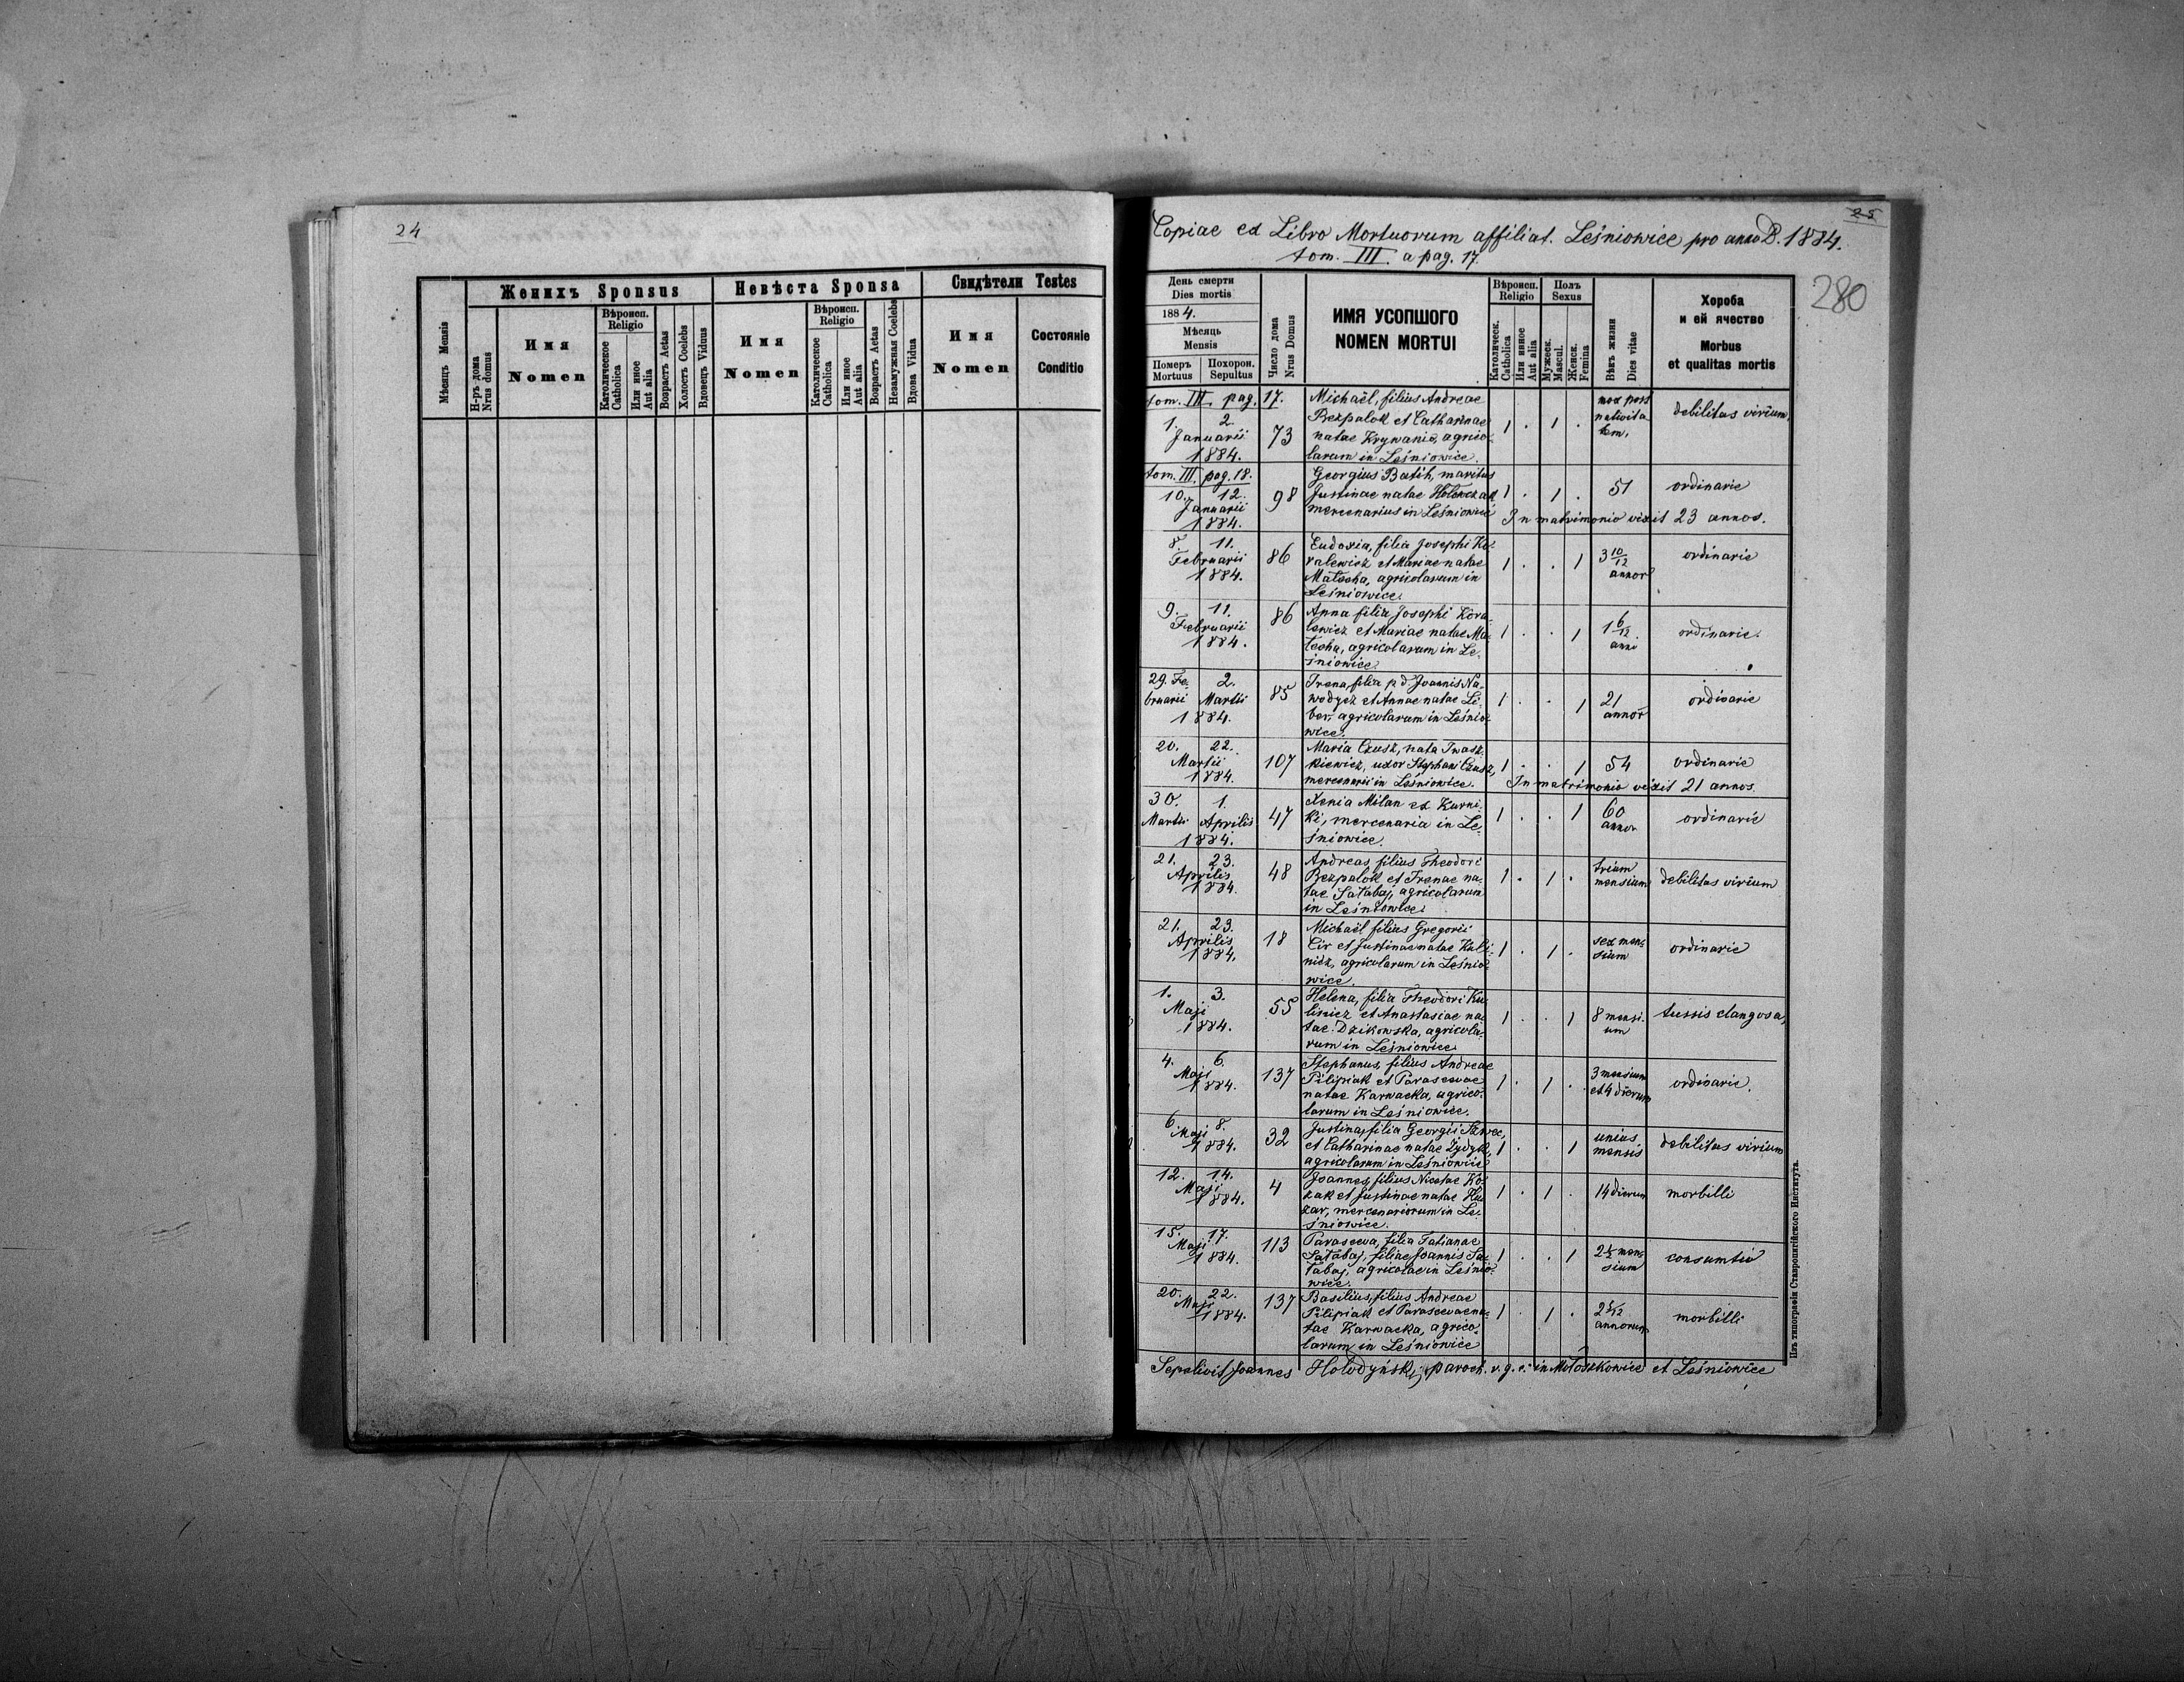 24
Женихъ Sponsus
Невѣста Sponsa
Свидѣтели Testes
Мѣсяцъ Mensis
Н-ръ дома
Nrus domus
Имя
Nomen
Вѣроисп.
Religio
Католическое
Catholica
Или иное
Aut alia
Возрастъ Aetas
Холостъ Coelebs
Вдовецъ Viduus
Имя
Nomen
Вѣроисп.
Religio
Католическое
Catholica
Или иное
Aut alia
Возрастъ Aetas
Незамужная Coelebs
Вдова Vidua
Имя
Nomen
Состояніе
Conditio
25
Copiae ex Libro Mortuorum affiliat. Leśniowice pro anno D. 1884.
tom. III. a pag. 17.
280
День смерти
Dies mortis
1884.
Мѣсяць
Mensis
Померъ
Mortuus
Похорон.
Sepultus
Число дома
Nrus Domus
ИМЯ УСОПШОГО
NOMEN MORTUI
Вѣроисп.
Religio
Католическ.
Catholica
Или инное
Aut alia
Полъ
Sexus
Мужеск.
Mascul.
Женск.
Femina
Вѣкъ жизни
Dies vitae
Хороба
и ей ячество
Morbus
et qualitas mortis
tom. III. pag. 17.
1. 2.
Januarii
1884.
73
Michaël, filius Andreae
Bezpalok et Catharinae
natae Krywanio, agrico-
larum in Leśniowice.
1 . 1 .
mox post
nativita
tem,
debilitas virium,
tom. III. pag. 18.
10. 12.
Januarii
1884.
98
Georgius Batih, maritus
Justinae natae
mercenarius in Leśniowice
1 . 1 .
51
ordinarie
In matrimonio vixit 23 annos.
8. 11.
Februarii
1884.
86
Eudoxia, filia Josephi Ko-
ralewicz et Mariae natae
Matocha, agricolarum in
Leśniowice.
1 . . 1
3 10/12
annor
ordinarie
9. 11.
Februarii
1884.
86
Anna filia Josephi Kora-
lewicz et Mariae natae Ma-
tocha, agricolarum in Le-
śniowice.
1 . . 1
1 6/12
anni
ordinarie.
29. Fe- 2.
bruarii Martii
1884.
85
Irena, filia p. d. Joannis Na-
wodycz et Annae natae Li-
ber, agricolarum in Leśnio-
wice.
1 . . 1
21
annor
ordinarie
20. 22.
Martii
1884.
107
Maria Czusz, nata Iwasz-
kiewicz, uxor Stephani Czusz,
mercenarii in Leśniowice.
1 . . 1
54
ordinarie
In matrimonio vixit 21 annos.
30. 1.
Martii Aprilis
1884.
47
Xenia Milan ex Kurni-
ki, mercenaria in Le-
śniowice.
1 . . 1
60
annor
ordinarie
21. 23.
Aprilis
1884.
48
Andreas, filius Theodori
Bezpalok et Irenae na-
tae Sałabaj, agricolarum
in Leśniowice.
1 . 1 .
trium
mensium
debilitas virium
21. 23.
Aprilis
1884.
18
Michaël filius Gregorii
Cir et Justinae natae Kali-
niak, agricolarum in Leśnio-
wice.
1 . 1 .
sex men-
sium
ordinarie
1. 3.
Maji
1884.
55
Helena, filia Theodori Ku-
linicz et Anastasiae na-
tae Dzikowska, agricola-
rum in Leśniowice
1 . . 1
8 mensi-
um
tussis clangosa,
4. 6.
Maji
1884.
137
Stephanus, filius Andreae
Pilipiak et Parascevae
natae Karwacka, agrico-
larum in Leśniowice.
1 . 1 .
3 mensium
et 4 dierum
ordinarie.
6. 8.
Maji
1884.
32
Justina, filia Georgii Szwec,
et Catharinae natae Żydyk,
agricolarum in Leśniowice
1 . . 1
unius
mensis
debilitas virium
12. 14.
Maji
1884.
4
Joannes, filius Nicetae Ko-
zak et Justinae natae Hu-
zar, mercenariorum in Le-
śniowice.
1 . 1 .
14 dierum
morbilli
15. 17.
Maji
1884.
113
Parasceva, filia Tatianae
Sałabaj, filiae Joannis Sa-
łabaj, agricolae in Leśnio-
wice.
1 . . 1
2 1/2 men-
sium
consumtio
20. 22.
Maji
1884.
137
Basilius, filius Andreae
Pilipiak et Parascevae na-
tae Karwacka, agrico-
larum in Leśniowice
1 . 1 .
annorum
morbilli
Sepelivit Joannes Hołodyński, paroch. r. g. c. in Mołoszkowice et Leśniowice
Изъ типографіи Ставропигійского Института.